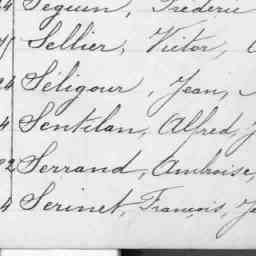 Seguin, Fréderic
Sellier, Victor,
Séligour, Jean,
Sentilan, Alfred, J
Serrand, Ambroise,
Serinet, François, Je